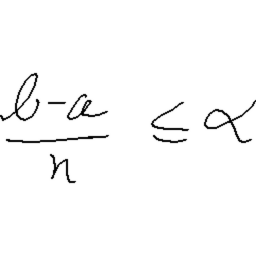 \frac{b-a}{n} \leq \alpha